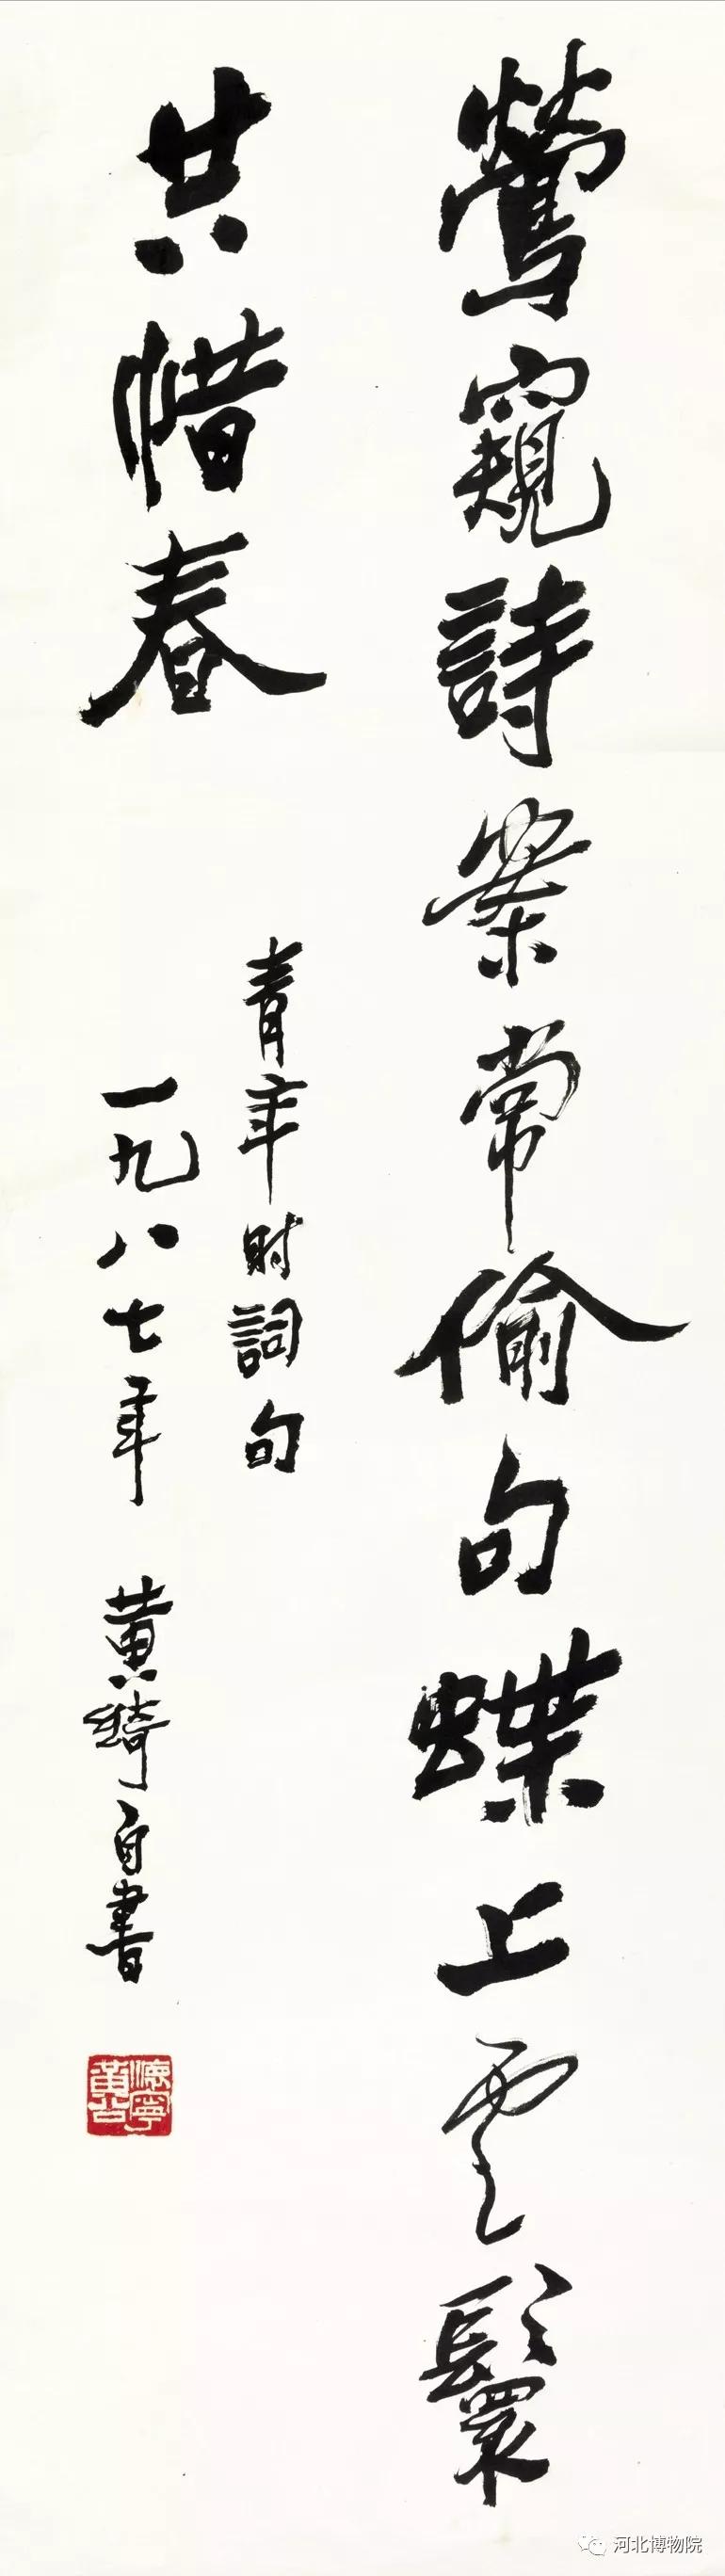 鶯窺詩案常偷句蝶上雲鬟
共惜春
青年時詞句
一九八七年 黄綺自書
懷寧
黄
河北博物院